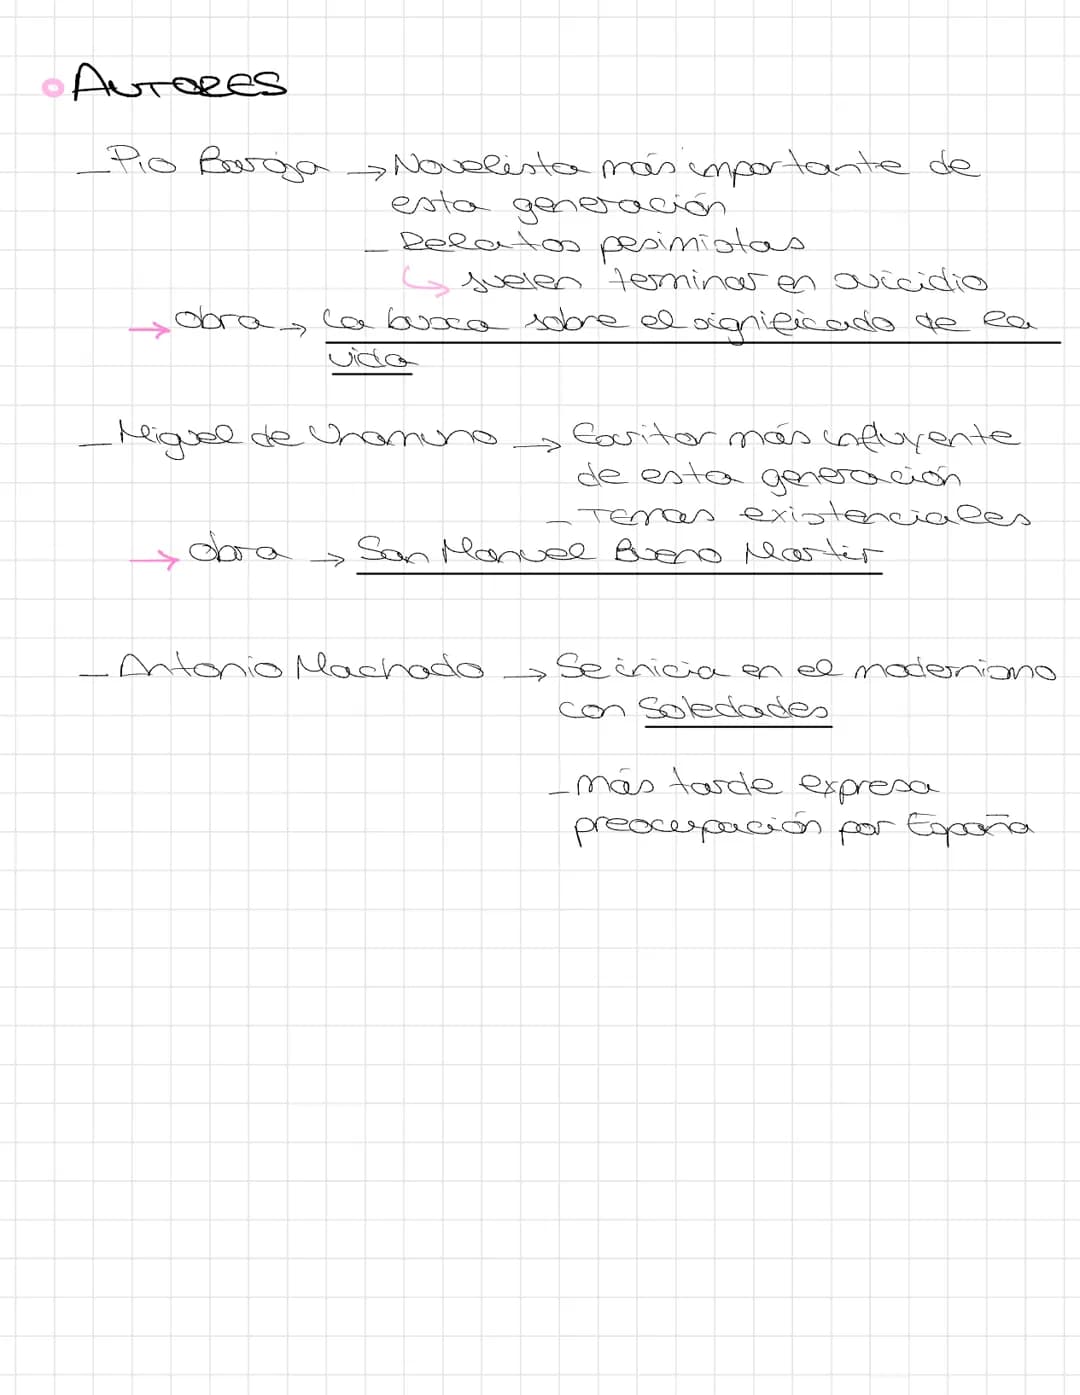 AUTORES
- Pio Baroja → Novelista más importante de
esta generación
- Relatos pesimistas
↳ suelen terminar en suicidio
→ obra → La busca sobre el significado de la
vida
- Miguel de Unamuno → Escritor más influyente
de esta generación
- Temas existenciales
→ obra → San Manuel Bueno Martir
- Antonio Machado → Se inicia en el modernismo
con Soledades
- más tarde expresa
preocupación por España